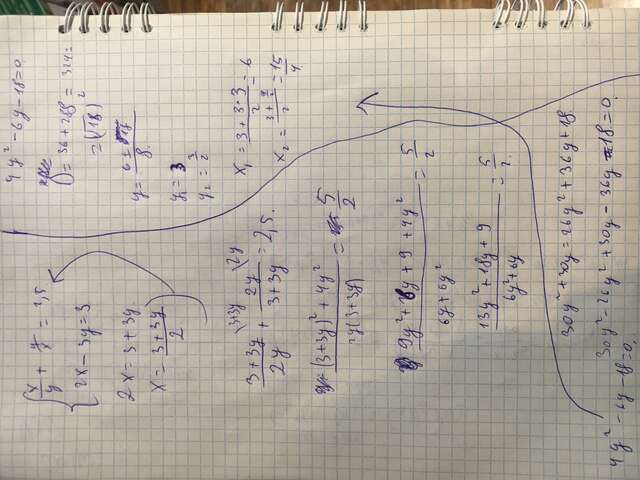 x/y + y/x = 2,5
2x - 3y = 3
2x = 3 + 3y
x = (3 + 3y)/2
(3 + 3y)/2y \3+3y + 2y/(3 + 3y) \2y = 2,5.
((3+3y)² + 4y²)/(2y(3+3y)) = 5/2
(9y² + 18y + 9 + 4y²)/(6y + 6y²) = 5/2
(13y² + 18y + 9)/(6y² + 6y) = 5/2.
30y² + 30y = 26y² + 36y + 18.
30y² - 26y² + 30y - 36y - 18 = 0.
4y² - 6y - 18 = 0.
4y² - 6y - 18 = 0
D = 36 + 288 = 324 =
= (18)²
y = (6 ± 18)/8.
y₁ = 3
y₂ = 3/2
x₁ = (3 + 3·3)/2 = 6
x₂ = (3 + 9/2)/2 = 15/4.